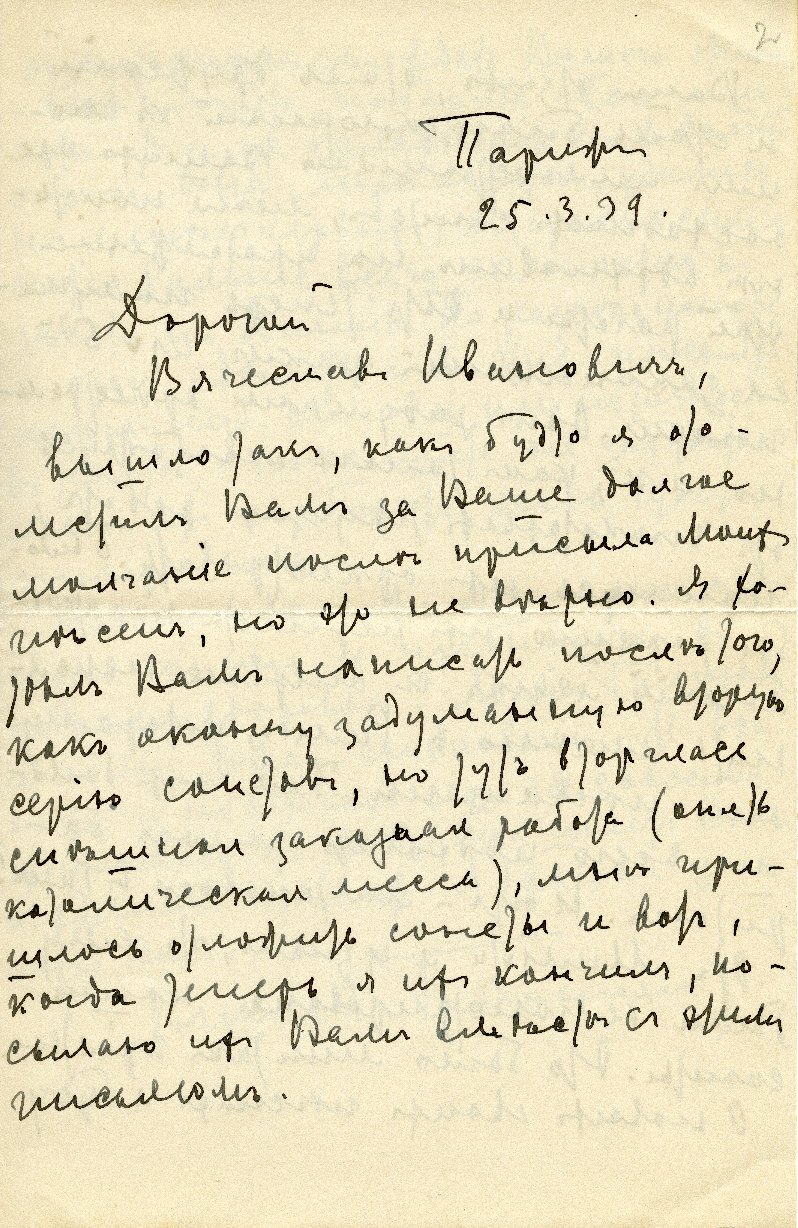 2
Парижъ
25.3.39.
Дорогой
Вячеславъ Ивановичъ,
вышло такъ, какъ будто я ото-
мстилъ Вамъ за Ваше долгое
молчаніе послѣ присыла моихъ
пѣсенъ, но это не вѣрно. Я хо-
тѣлъ Вамъ написать послѣ того,
какъ окончу задуманную вторую
серію сонетовъ, но тутъ вторглась
спѣшная заказная работа (опять
католическая месса), мнѣ при-
шлось отложить сонеты и вотъ,
когда теперь я ихъ кончилъ, по-
сылаю ихъ Вамъ вмѣстѣ съ этимъ
письмомъ.